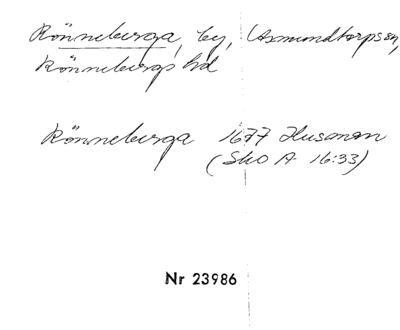 Rönneberga, by, Asmundtorps sn,
Rönnebergs hd
Rönneberga 1677 Husman
(Sko A 16:33)
Nr 23986